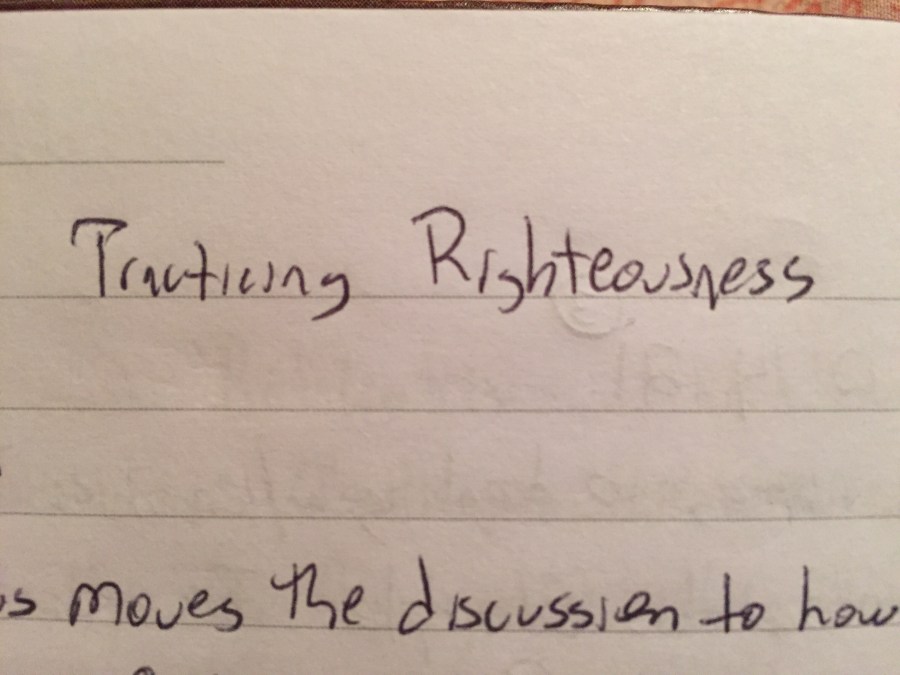 Practicing Righteousness
s moves the discussion to how